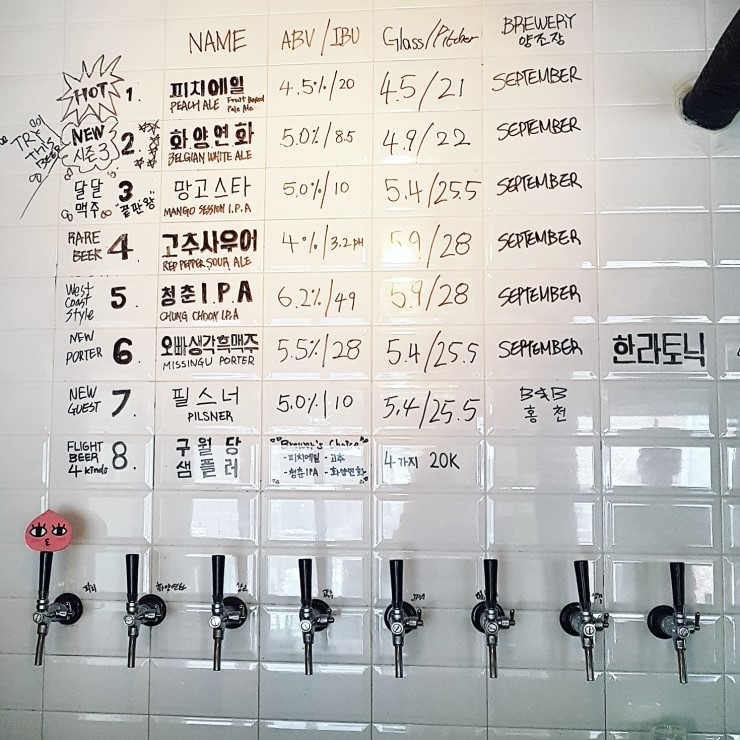 NAME ABV/IBU Glass/Pitcher BREWERY
양조장
HOT 1. 피치에일 4.5%/20 4.5/21 SEPTEMBER
PEACH ALE Fruit Based
Pale Ale
TRY
THIS
BEER
NEW
시즌3 2. 화양연화 5.0%/8.5 4.9/22 SEPTEMBER
BELGIAN WHITE ALE
달달
맥주 3 "끝판왕" 망고스타 5.0%/10 5.4/25.5 SEPTEMBER
MANGO SESSION I.P.A
RARE
BEER 4. 고추사우어 4%/3.2pH 5.9/28 SEPTEMBER
RED PEPPER SOUR ALE
West
Coast
Style 5. 청춘I.P.A 6.2%/49 5.9/28 SEPTEMBER
CHUNG CHOON I.P.A
NEW
PORTER 6. 오빠생각흑맥주 5.5%/28 5.4/25.5 SEPTEMBER 한라토닉
MISSINGU PORTER
NEW
GUEST 7. 필스너 5.0%/10 5.4/25.5 B&B
PILSNER 홍천
FLIGHT
BEER
4 kinds 8. 구월당
샘플러
Brewer's Choice
-피치에일 -고추
-청춘IPA -화양연화
4가지 20K
피치 화양연화 망고 고추 IPA